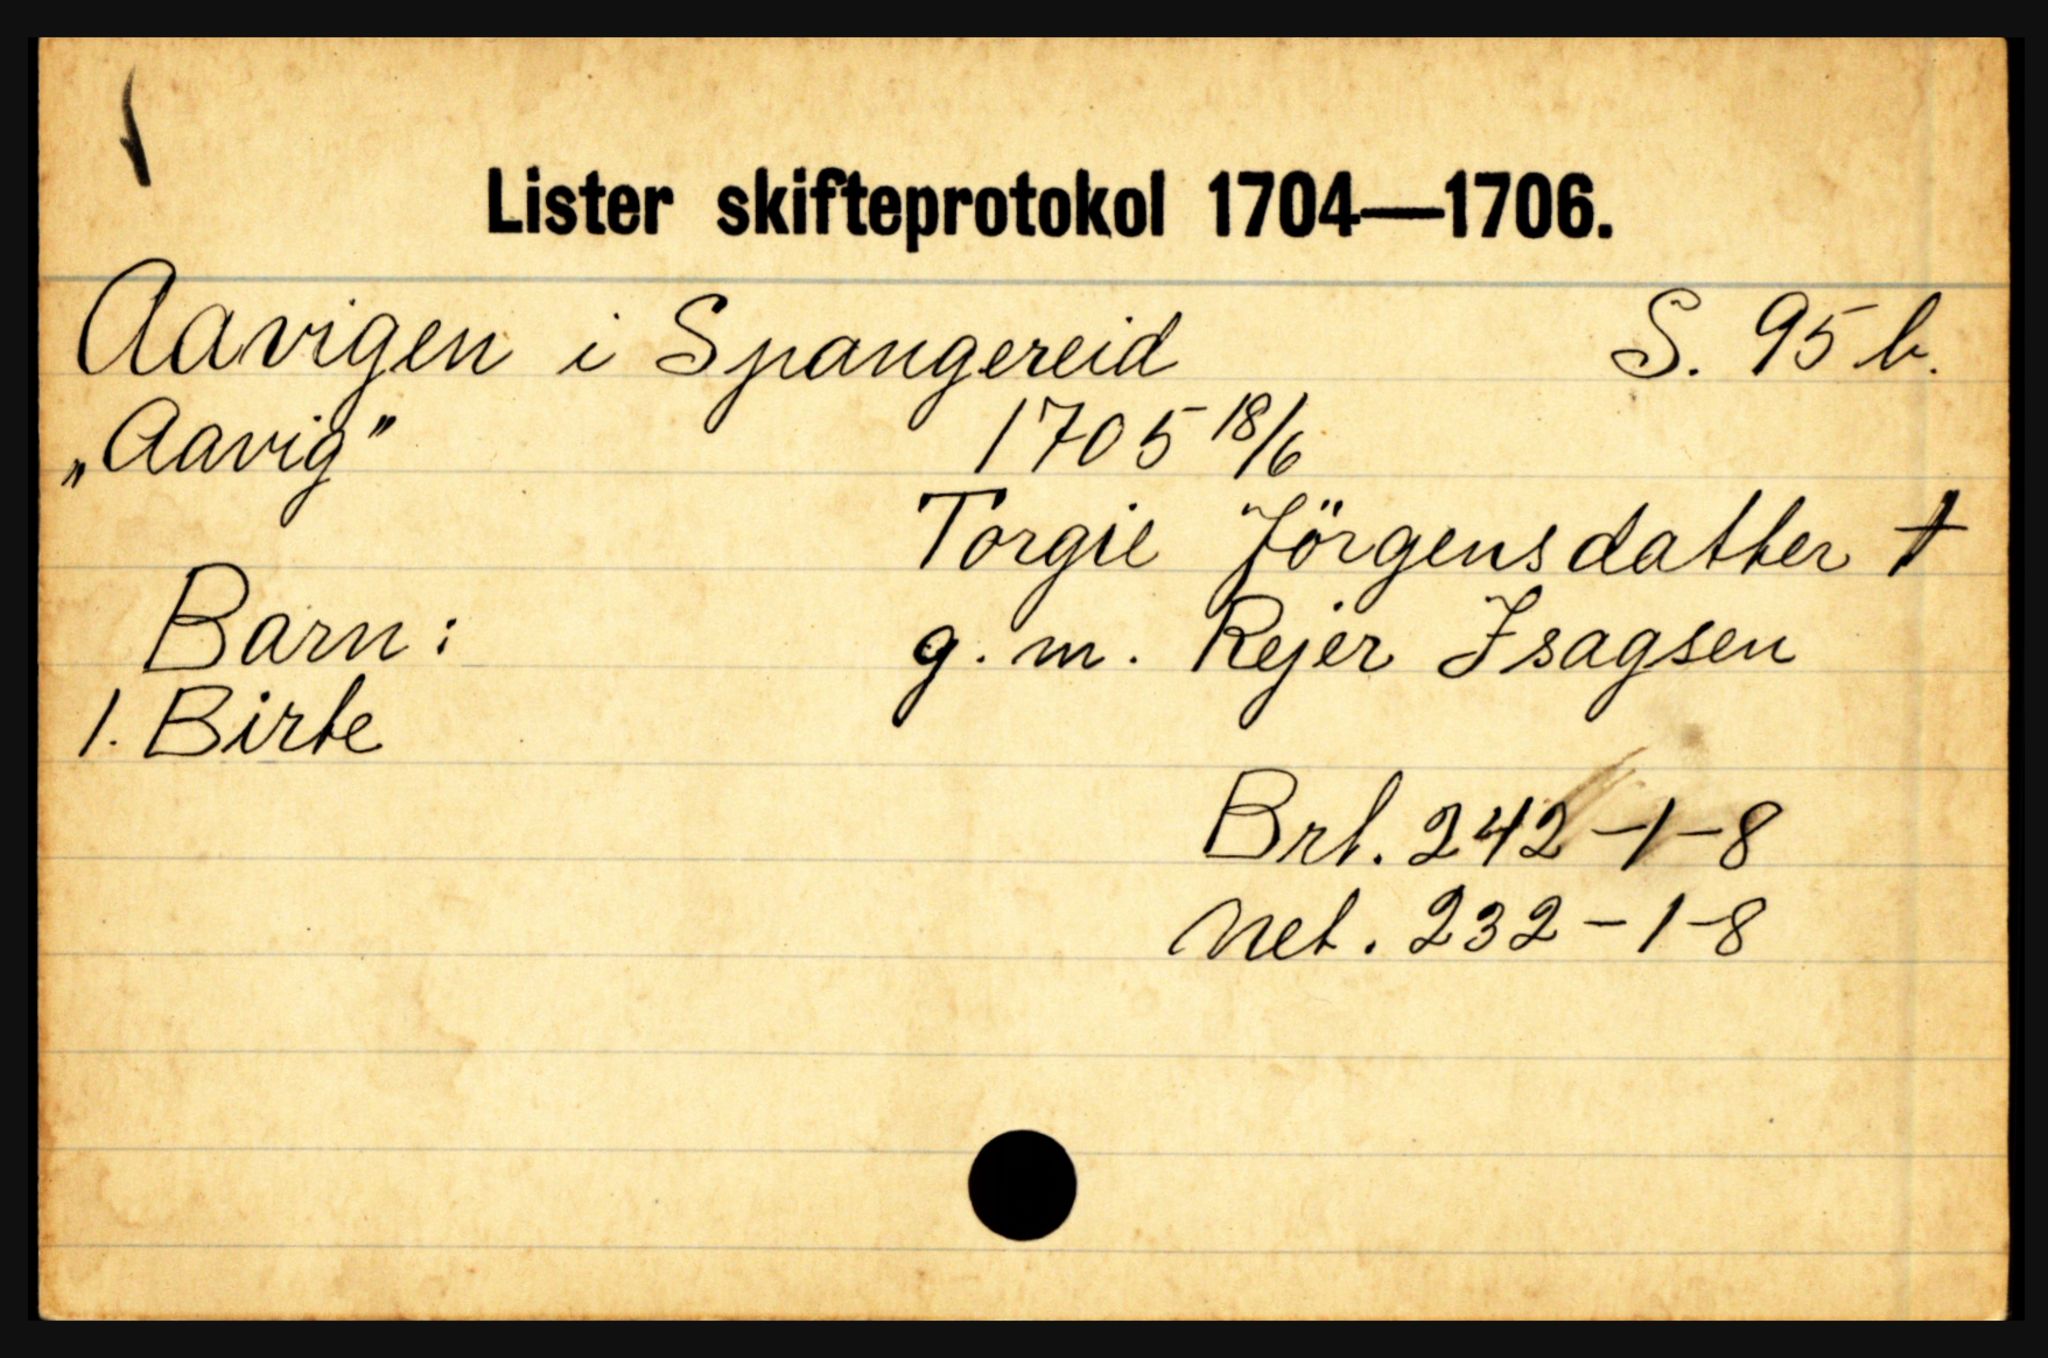 Lister skifteprotokol 1704—1706.
Aavigen i Spangereid S. 95 b.
„Aavig” 1705 18/6
Torgie Jörgensdatter †
Barn: g. m. Rejer Isagsen
1. Birte
Brt. 242-1-8
Net. 232-1-8